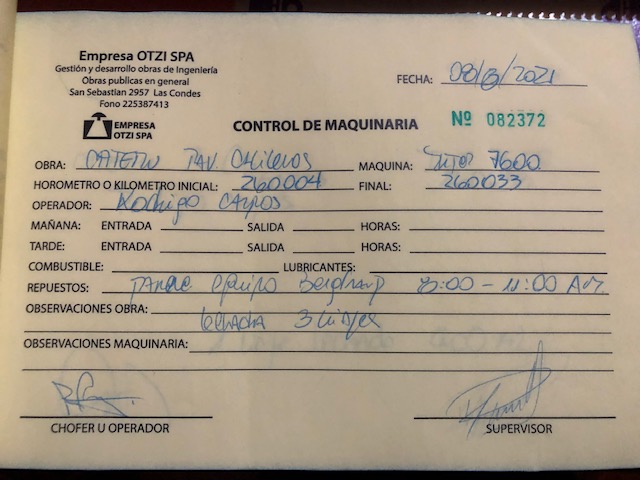 Empresa OTZI SPA
Gestión y desarrollo obras de Ingeniería
Obras publicas en general
San Sebastian 2957 Las Condes
Fono 225387413
FECHA: 08/6/2021
EMPRESA
OTZI SPA
CONTROL DE MAQUINARIA
Nº 082372
OBRA: MAQUINA: 7600
HOROMETRO O KILOMETRO INICIAL: 260004 FINAL: 260033
OPERADOR: Rodrigo Campos
MAÑANA: ENTRADA SALIDA HORAS:
TARDE: ENTRADA SALIDA HORAS:
COMBUSTIBLE: LUBRICANTES:
REPUESTOS: 8:00 - 11:00
OBSERVACIONES OBRA: 3
OBSERVACIONES MAQUINARIA:
CHOFER U OPERADOR SUPERVISOR